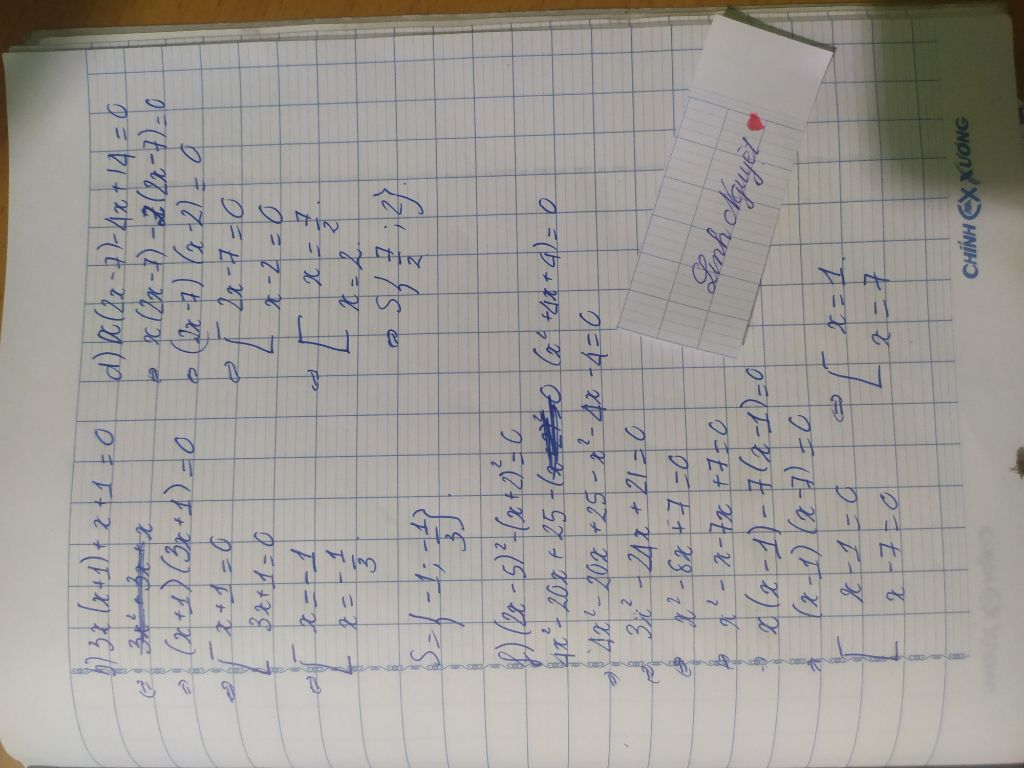 b) 3x(x+1)+x+1=0
⇔ (x+1)(3x+1)=0
⇔ [ x+1=0
3x+1=0
⇔ [ x=-1
x=-1/3
S={-1; -1/3}.
d) x(2x-7)-4x+14=0
⇔ x(2x-7)-2(2x-7)=0
⇔ (2x-7)(x-2)=0
⇔ [ 2x-7=0
x-2=0
⇔ [ x=7/2.
x=2.
⇔ S{7/2; 2}.
f) (2x-5)²-(x+2)²=0
4x²-20x+25-(x²+4x+4)=0
⇔ 4x²-20x+25-x²-4x-4=0
⇔ 3x²-24x+21=0
⇔ x²-8x+7=0
⇔ x²-x-7x+7=0
⇔ x(x-1)-7(x-1)=0
⇔ (x-1)(x-7)=0
[ x-1=0
x-7=0
⇔ [ x=1.
x=7
Linh Nguyệt
CHÍNH XƯƠNG